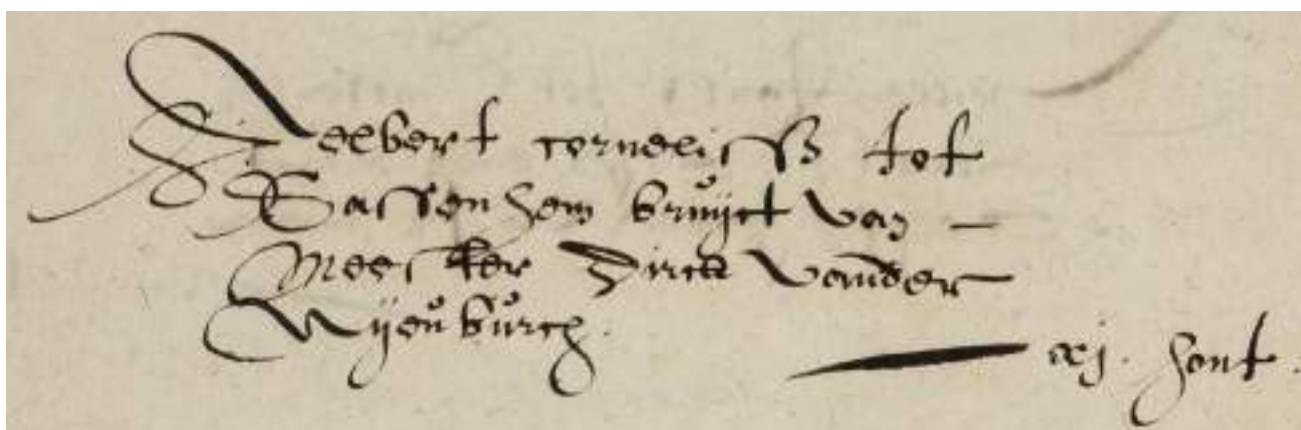 Aelbert cornelissz tot
Sassenhem bruijct van -
Meester Dirck vander
Nijenburch.
xj. hont.